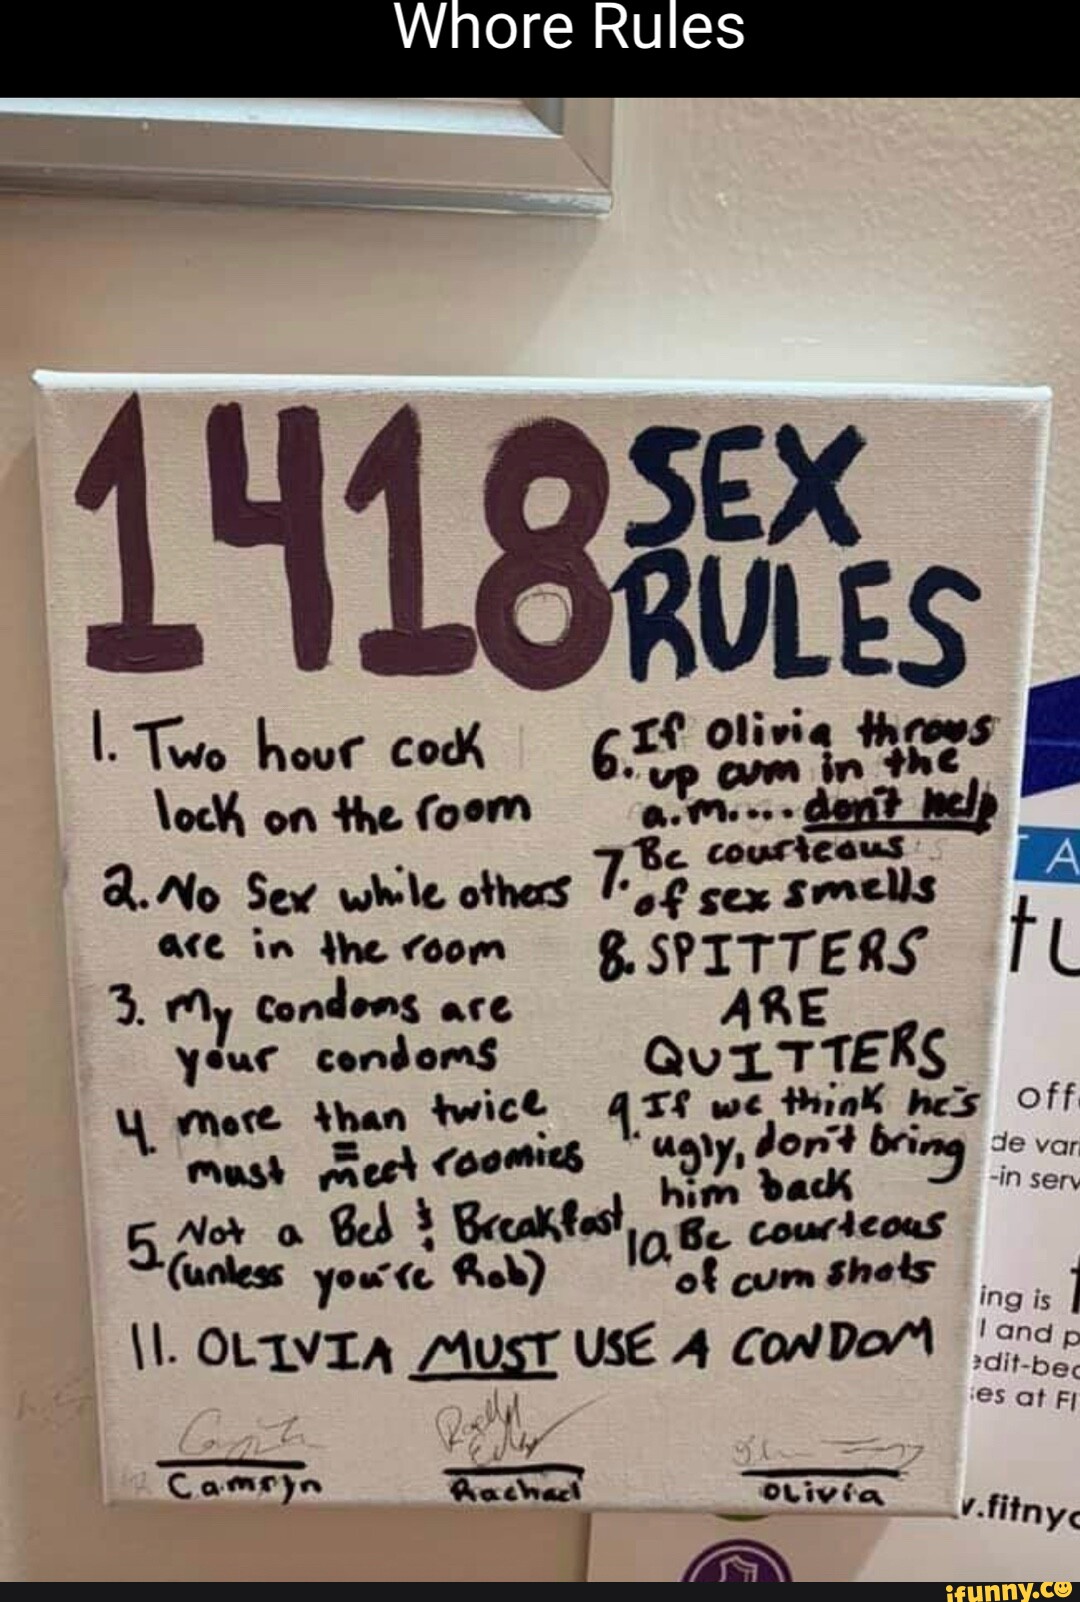 Whore Rules
1418 SEX
RULES
1. Two hour cock
lock on the room
2. No Sex while others
are in the room
3. My condoms are
your condoms
4. more than twice
= must meet roomies
5. Not a Bed & Breakfast
(unless you're Rob)
6. If Olivia throws
up cum in the
a.m.... don't help
7. Be courteous
of sex smells
8. SPITTERS
ARE
QUITTERS
9. If we think he's
ugly, don't bring
him back
10. Be courteous
of cum shots
11. OLIVIA MUST USE A CONDOM
Camryn
Rachael
OLivia
T A
tu
off
de var
-in serv
ing is
l and p
edit-bec
es at FI
v.fitnyc
ifunny.co